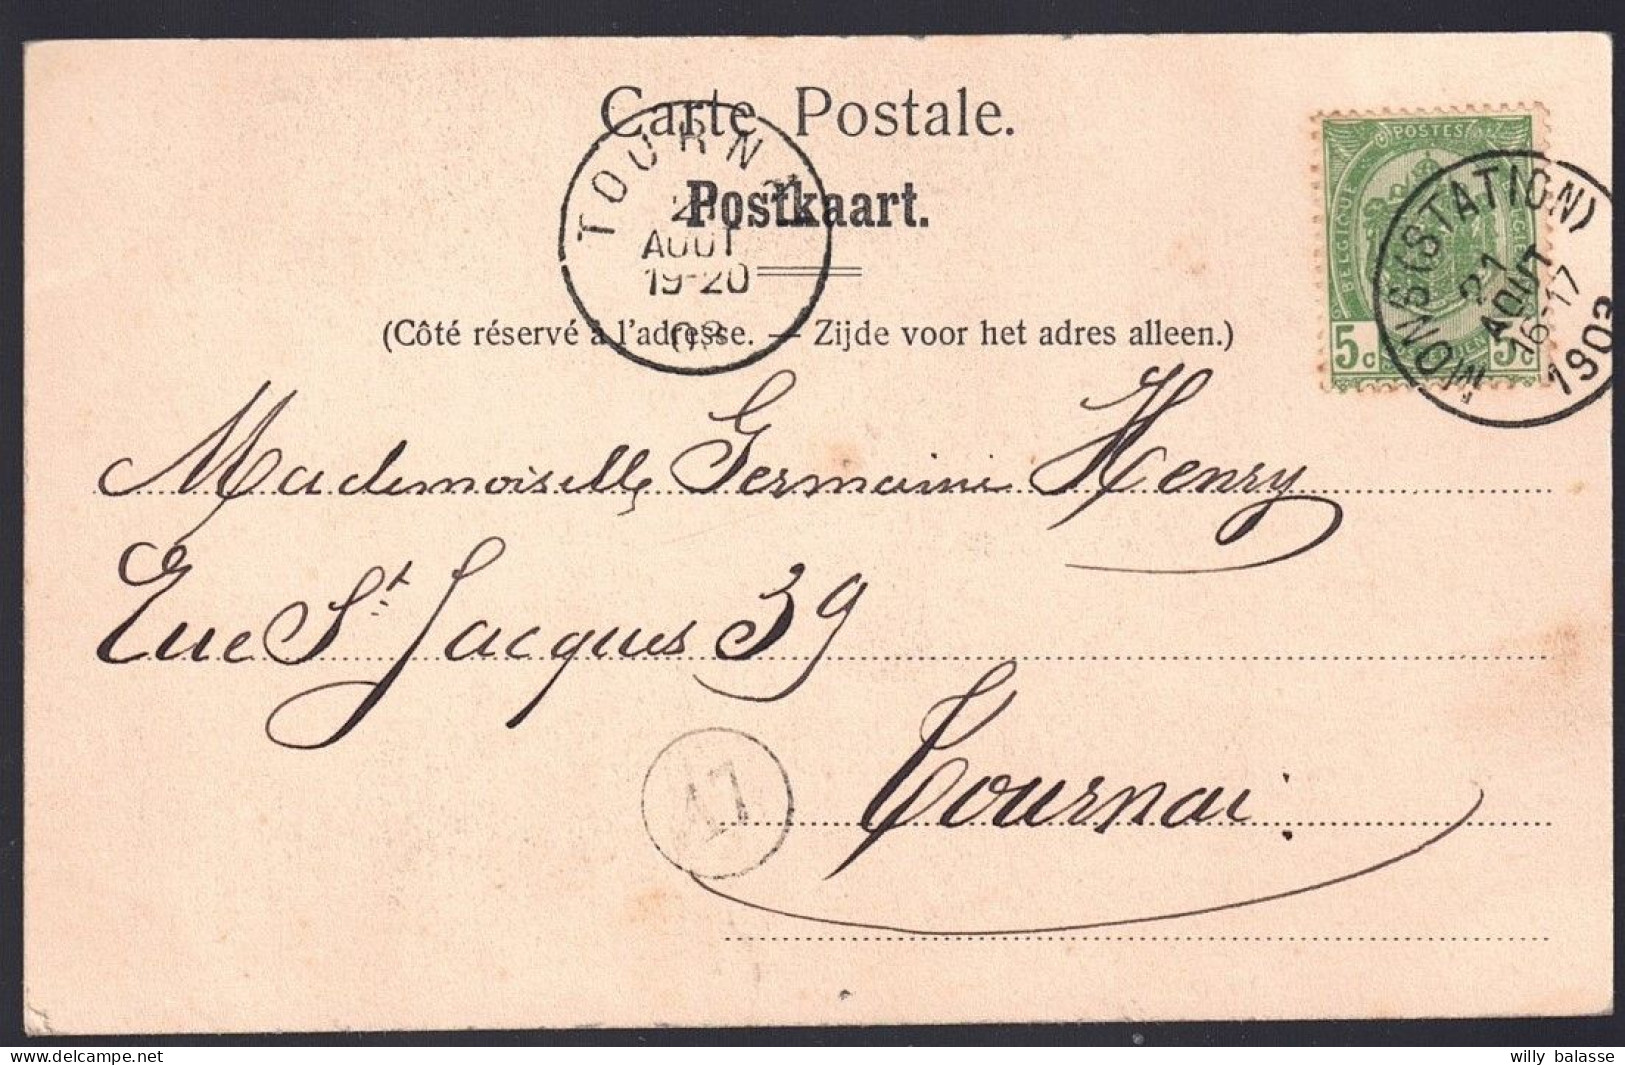 Carte Postale.
Postkaart.
(Côté réservé à l'adresse. — Zijde voor het adres alleen.)
TOURN
21
AOUT
19-20
03
POSTES
BELGIQUE
5c 5c
MONS (STATION)
21
AOUT
16-17
1903
Mademoiselle Germaine Henry
Rue St Jacques 39
Tournai.
delcampe.net
willy balasse